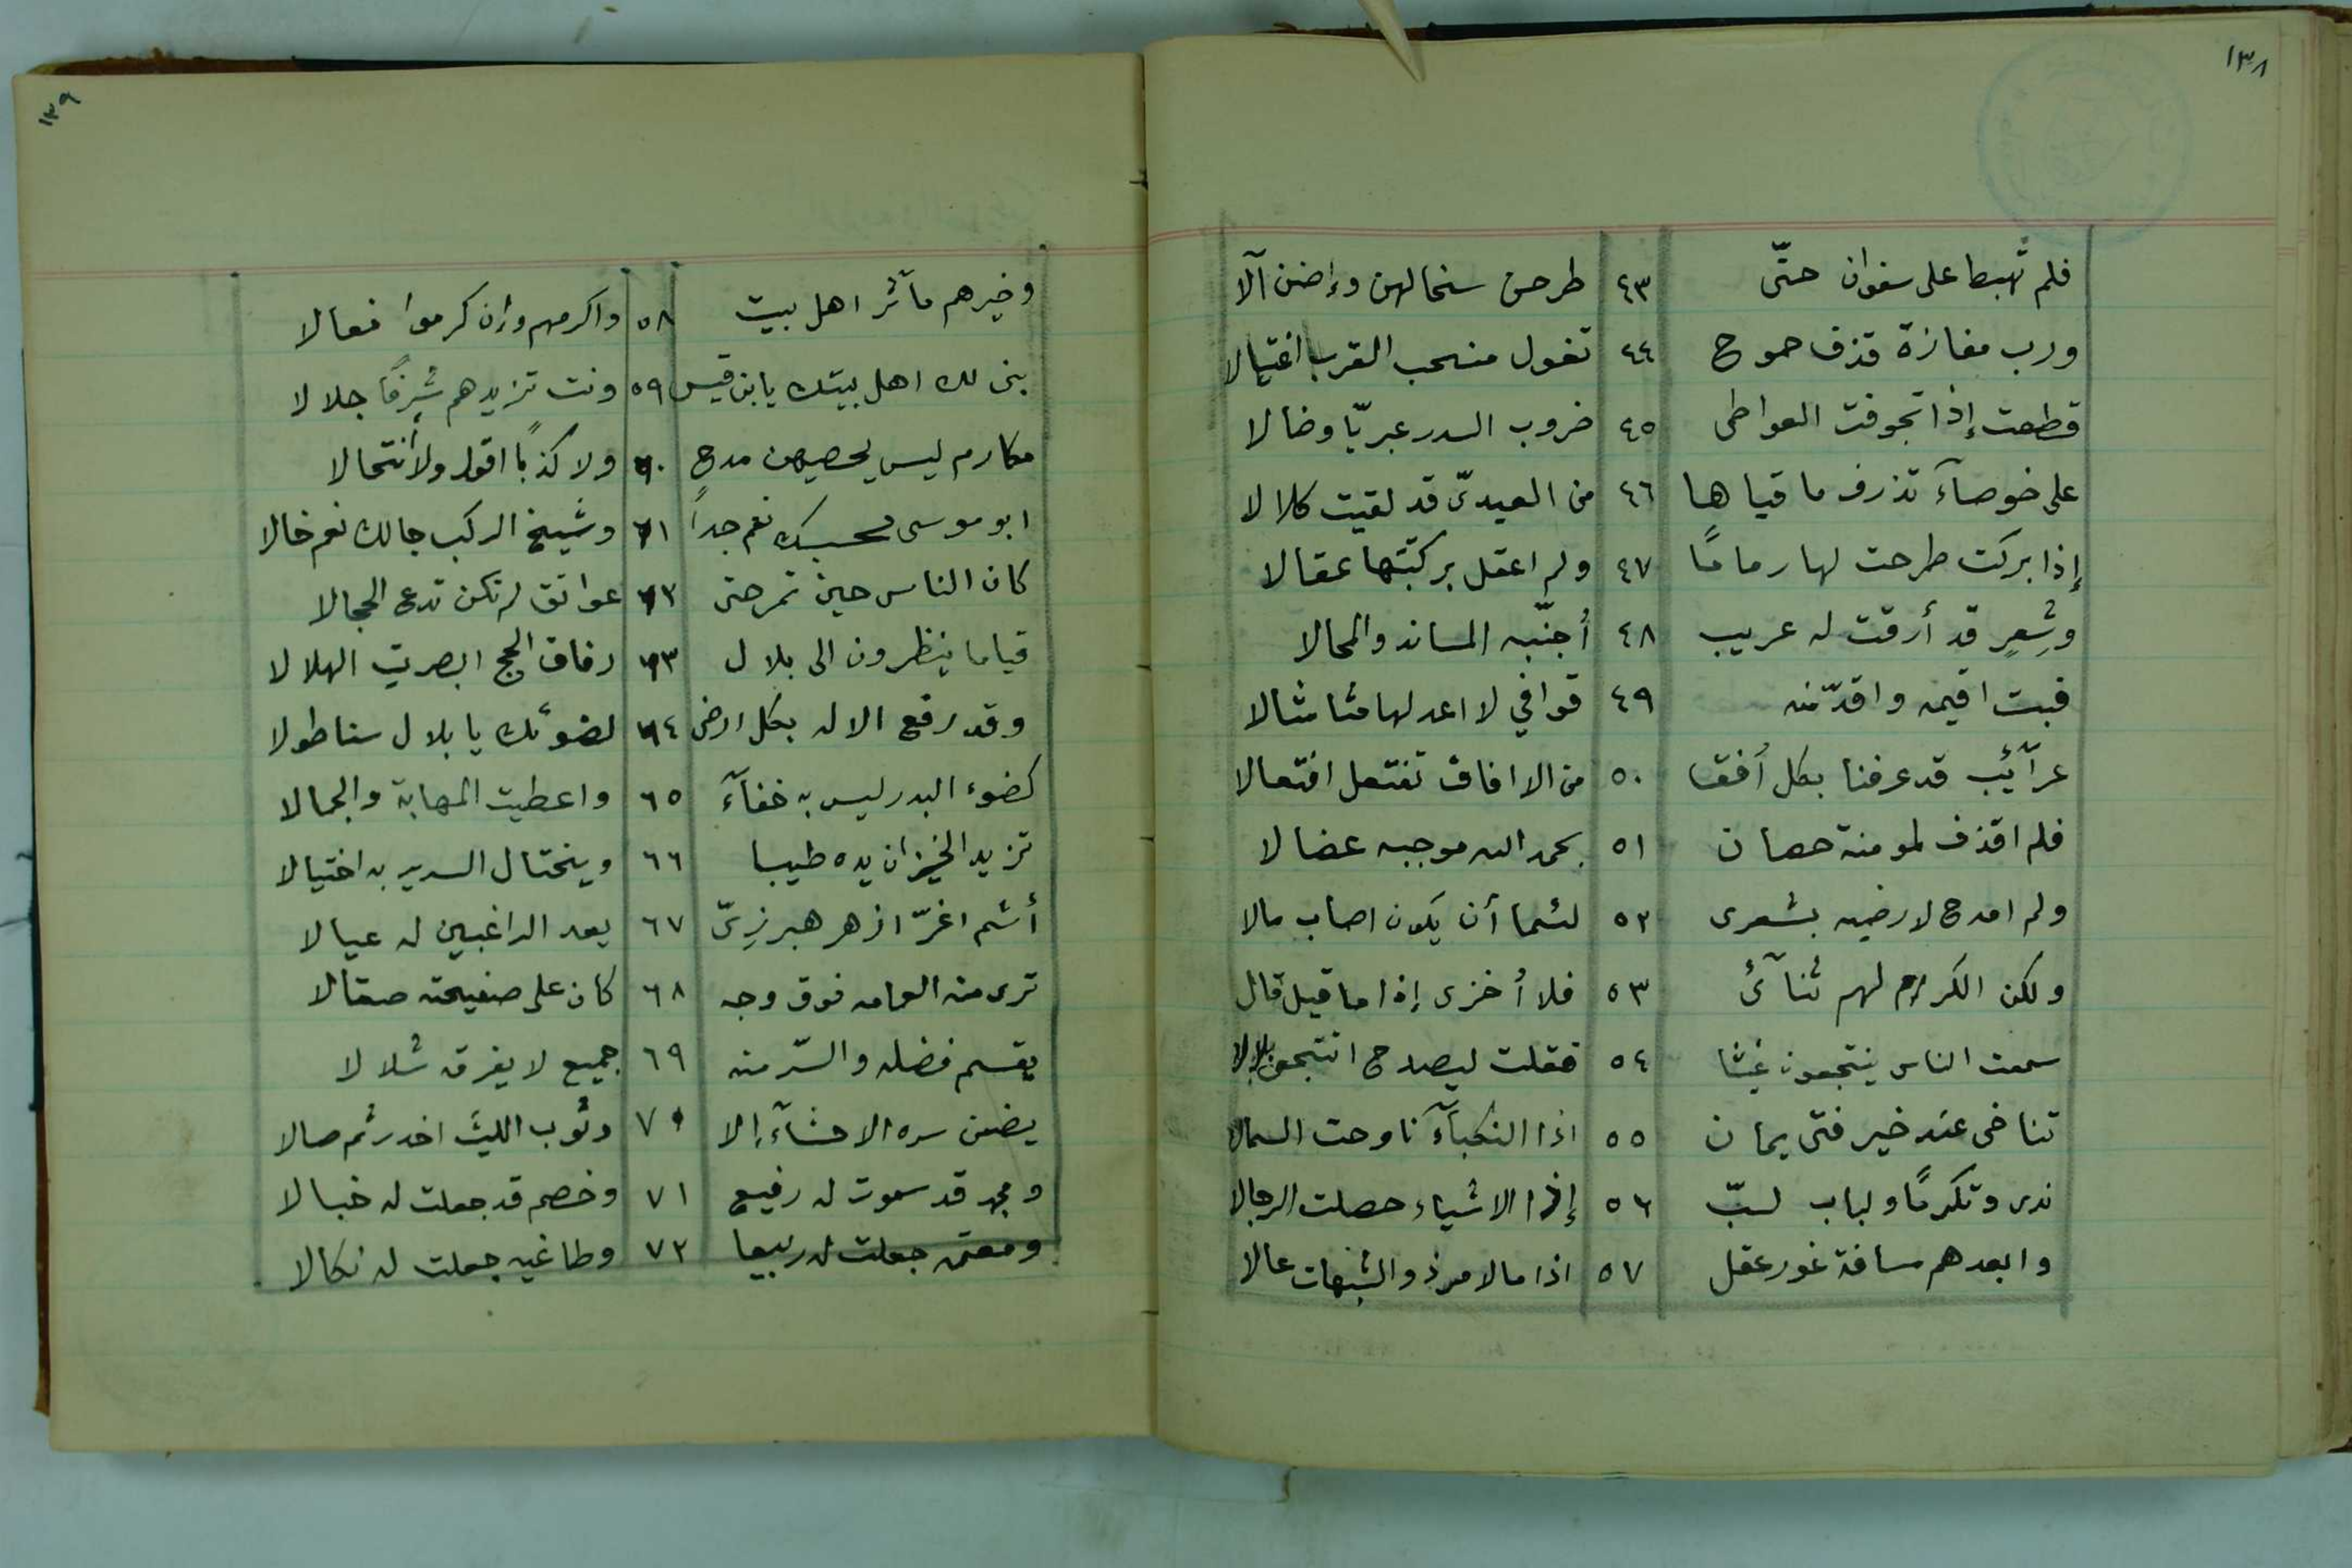 ١٣٨
فلم تهبط على سفوان حتّى ٤٣ طرحن سخالهن وإضن آلا
ورب مفازة قذف جموح ٤٤ تغول منحب القرب اغتيالا
قطعت إذا تجوفت العواطى ٤٥ ضروب السدر عبريّا وضالا
على خوصآء تذرف ماقياها ٤٦ من العيدىّ قد لقيت كلالا
إذا بركت طرحت لها زمامًا ٤٧ ولم اعقل بركبتها عقالا
وشِعرٍ قد أرقت له غريب ٤٨ أُجنّبه المساند والمحالا
فبت اقيمه واقدّمنه ٤٩ قوافي لا اعد لها مثالا
غرآئب قد عرفنا بكل أفق ٥٠ من الافاق تفتعل افتعالا
فلم اقذف لمومنة حصان ٥١ بحمد الله موجبه عضالا
ولم امدح لارضيه بشعرى ٥٢ لئما أن يكون اصاب مالا
ولكن الكرام لهم ثنآئ ٥٣ فلا أخزى إذا ما قيل قال
سمعت الناس ينتجعون غيثا ٥٤ فقلت لصيدح انتجعى بلالا
تناخى عند خير فتى يمان ٥٥ اذا النكبآء ناوحت الشمالا
ندى وتكرمًا ولباب لبّ ٥٦ إذا الاشياء حصلت الرجالا
وابعدهم مسافة غور عقل ٥٧ اذا مالامر ذو الشبهات عالا
١٣٩
وخيرهم مآثر اهل بيت ٥٨ واكرمهم وإن كرموا فعالا
بنى لك اهل بيتك يا بن قيس ٥٩ ونت تزيدهم شرفًا جلالا
مكارم ليس يحصيهن مدح ٦٠ ولا كذبًا اقول ولا أنتحالا
ابو موسى فحسبك نعم جداً ٦١ وشيخ الركب جالك نعم خالا
كان الناس حين تمر حتى ٦٢ عواتق لم تكن تدع الحجالا
قياما ينظرون الى بلال ٦٣ رفاق الحج ابصرت الهلالا
وقد رفع الاله بكل ارض ٦٤ لضوئك يا بلال سنا طولا
كضوء البدر ليس به خفآء ٦٥ واعطيت المهابة والجمالا
تزيد الخيزران يده طيبا ٦٦ ويختال السرير به اختيالا
أشم اغرّ ازهر هبرزىّ ٦٧ يعد الراغبين له عيالا
ترى منه العمامه فوق وجه ٦٨ كان على صفيحته صقالا
يقسم فضله والسّر منه ٦٩ جميع لا يفرقه شلالا
يضمن سره الاحشآء إلا ٧٠ وثوب الليث اخدر ثم صالا
ومجد قد سموت له رفيع ٧١ وخصم قد جعلت له خبالا
ومعتمر جعلت له ربيعا ٧٢ وطاغيه جعلت له نكالا